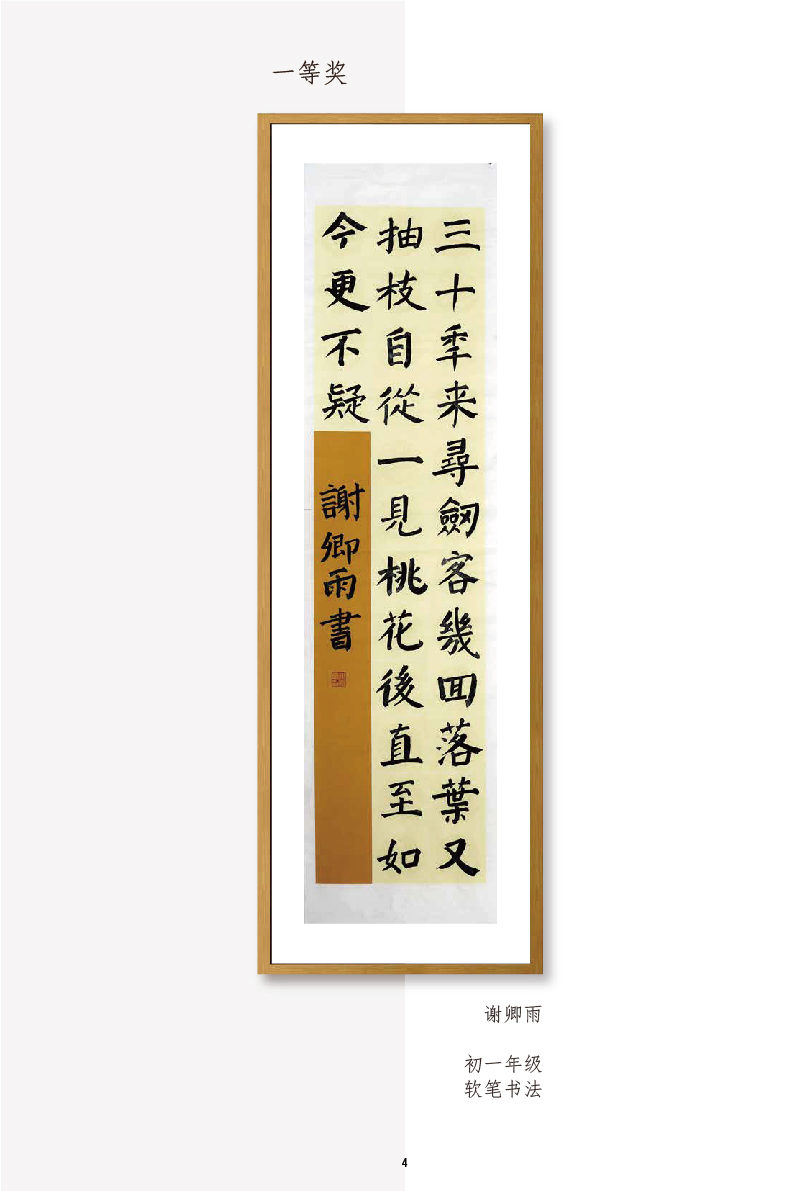 一等奖
三十秊来尋劒客幾回落葉又
抽枝自從一見桃花後直至如
今更不疑
謝卿雨書
谢卿雨
初一年级
软笔书法
4